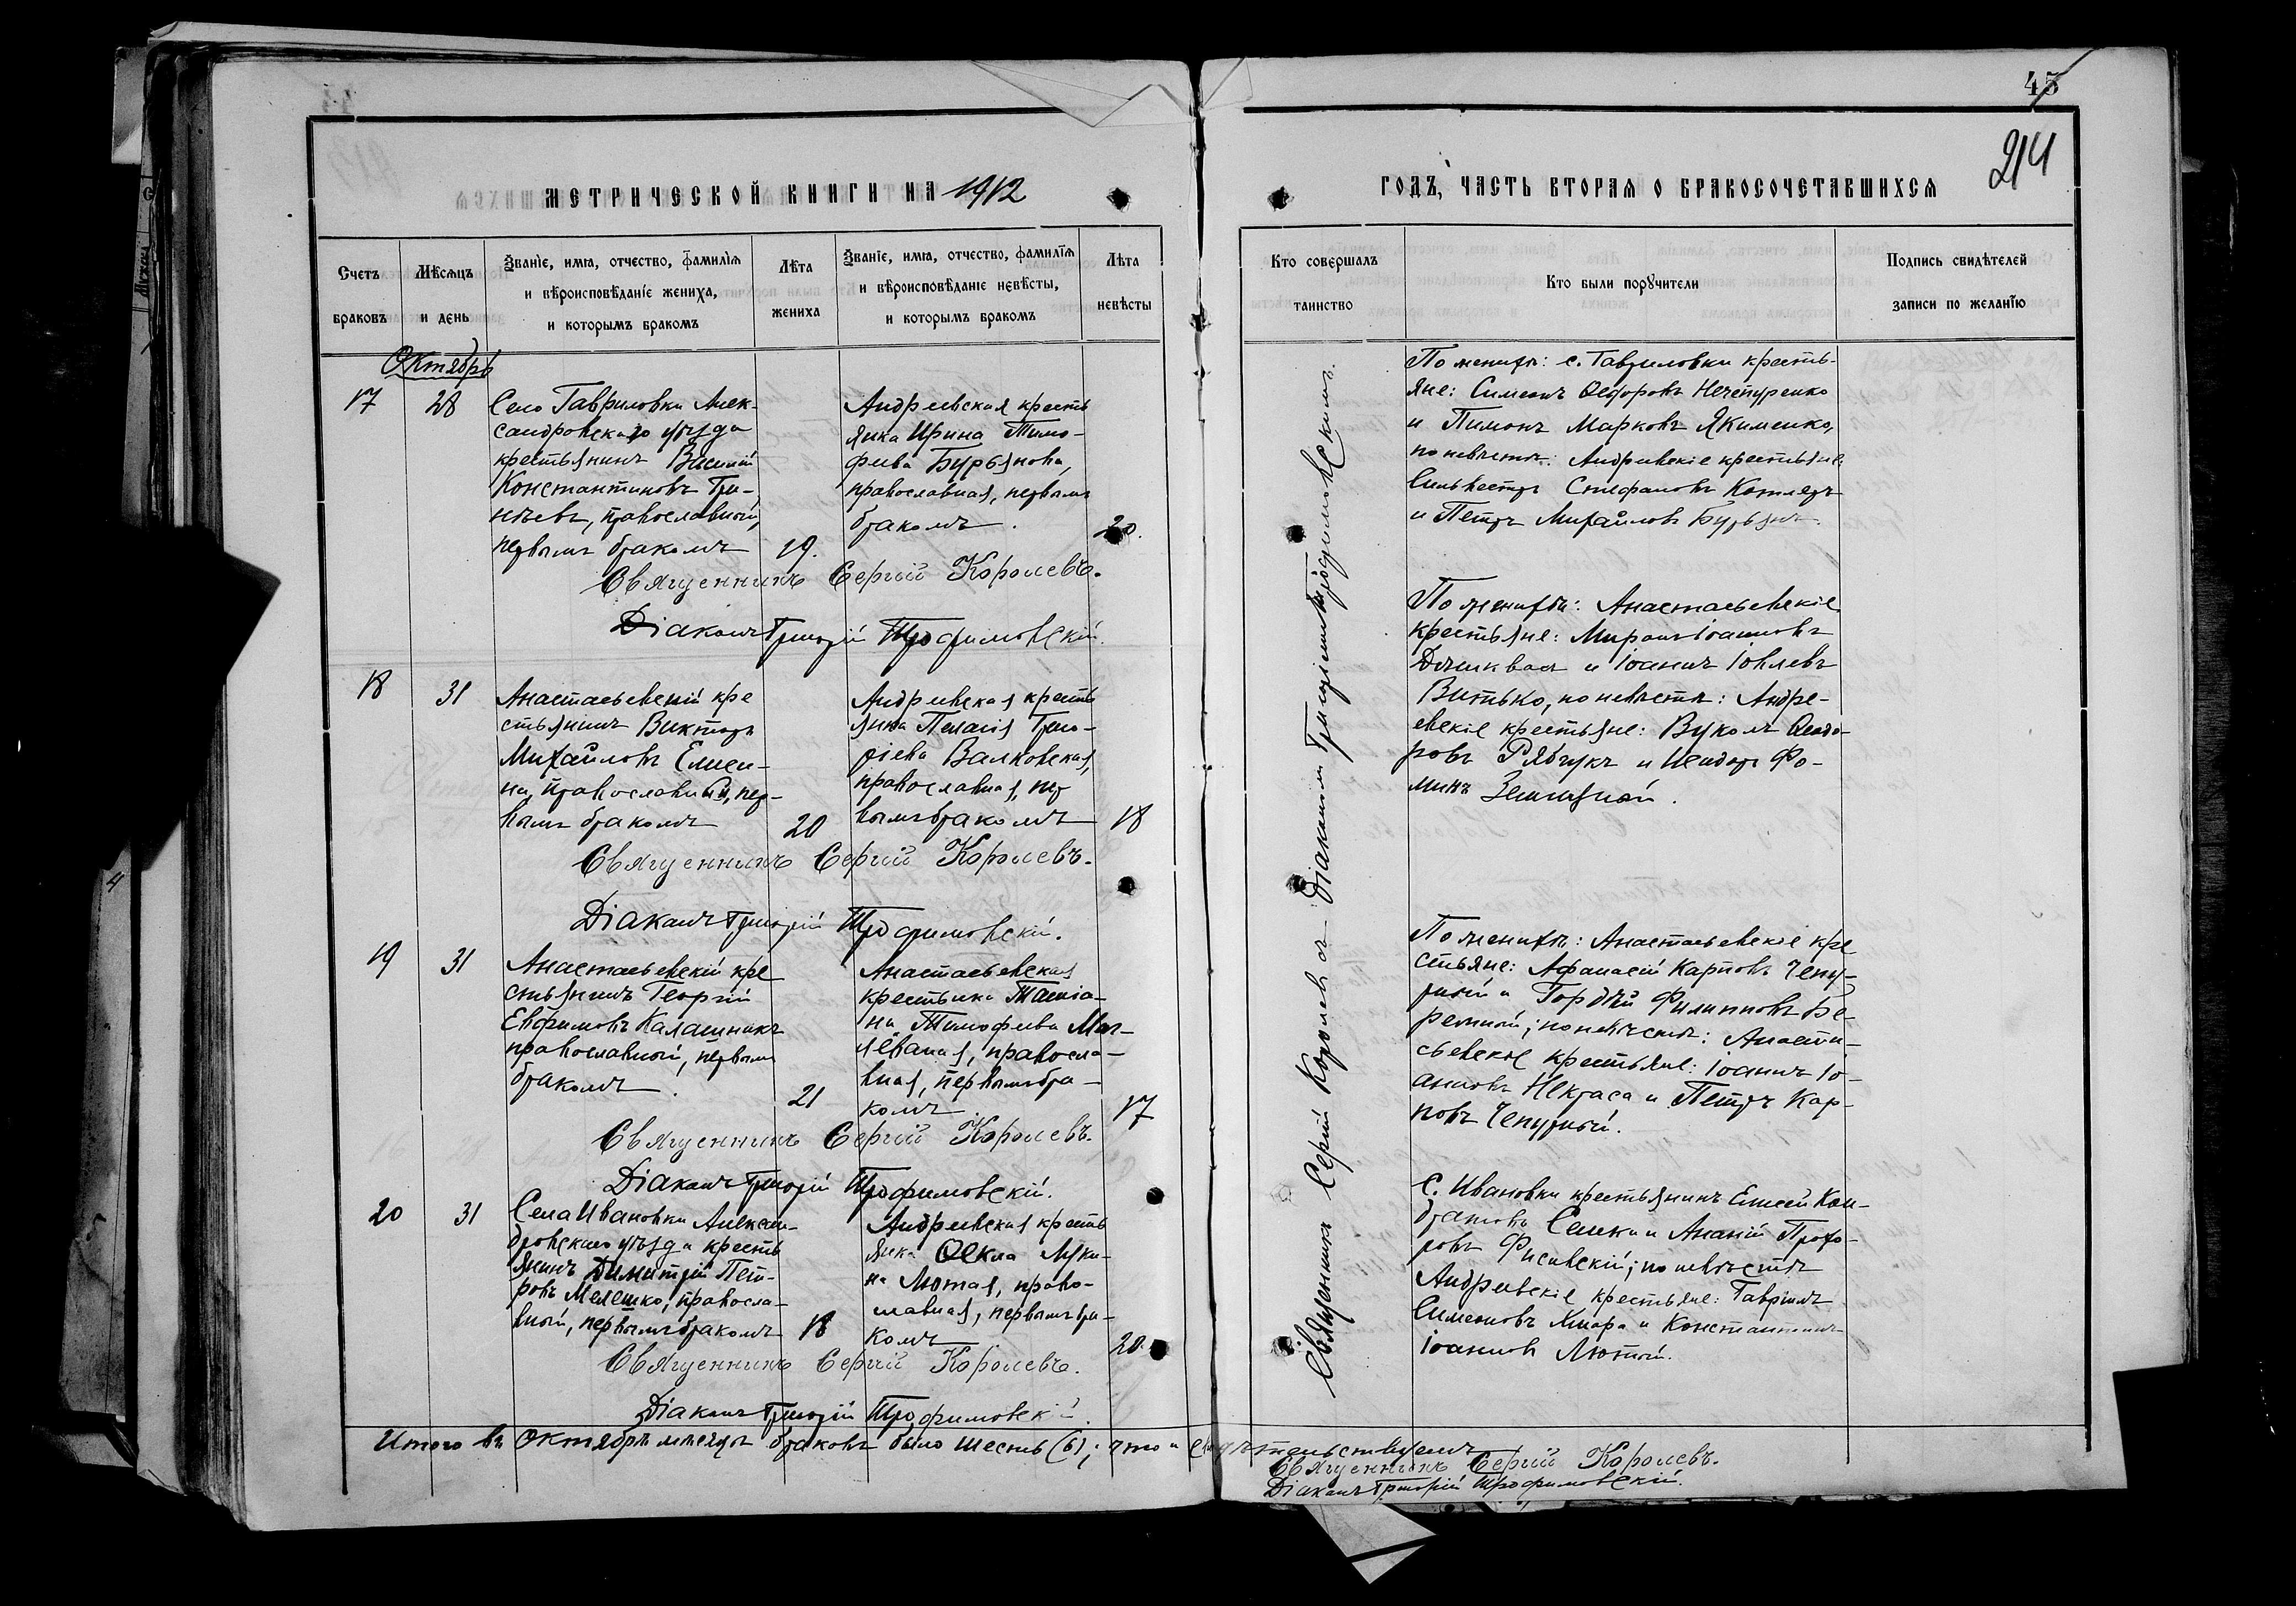 45
214
МЕТРИЧЕСКОЙ КНИГИ НА 1912
ГОДЪ, ЧАСТЬ ВТОРАЯ О БРАКОСОЧЕТАВШИХСЯ
Счетъ
браковъ
Мѣсяцъ
и день
Званіе, имя, отчество, фамилія
и вѣроисповѣданіе жениха,
и которымъ бракомъ
Лѣта
жениха
Званіе, имя, отчество, фамилія
и вѣроисповѣданіе невѣсты,
и которымъ бракомъ
Лѣта
невѣсты
Кто совершалъ
таинство
Кто были поручители
Подпись свидѣтелей
записи по желанію
Октябрь
17
28
Село Гавриловки Алек-
сандровскаго уѣзда
крестьянинъ Василій
Константиновъ Гри-
нѣевъ, православный,
первымъ бракомъ
19.
Андреевская кресть
янка Ирина Тимо-
феева Бурьянова,
православная, первымъ
бракомъ.
20.
Священникъ Сергій Королевъ.
Діаконъ Григорій Трофимовскій.
18
31
Анастасьевскій кре
стьянинъ Викторъ
Михайловъ
православный, пер-
вымъ бракомъ
20
Андреевская кресть
янка Пелагія Григо-
ріева Валковская,
православная, пер
вымъ бракомъ
18
Священникъ Сергій Королевъ.
Діаконъ Григорій Трофимовскій.
19
31
Анастасьевскій кре
стьянинъ Георгій
Евфимовъ Калашникъ
православный, первымъ
бракомъ.
21
Анастасьевская
крестьянка Татіа-
на Тимофеева
православ-
ная, первымъ бра-
комъ
17
Священникъ Сергій Королевъ.
Діаконъ Григорій Трофимовскій.
20
31
Села Ивановки Алексан-
дровскаго уѣзда кресть
янинъ Димитрій Пет-
ровъ Мелешко, правосла-
вный, первымъ бракомъ
18
Андреевская кресть
янка Ѳекла Луки-
на Лютая, право-
славная, первымъ бра-
комъ
20.
Священникъ Сергій Королевъ.
Діаконъ Григорій Трофимовскій.
Священникъ Сергій Королевъ съ Діакономъ Григоріемъ Трофимовскимъ.
По женихѣ: с. Гавриловки кресть-
яне: Симеонъ Ѳедоровъ Нечепуренко
и Пимонъ Марковъ Якименко,
по невѣстѣ: Андреевскіе крестьяне:
Сильвестръ Стефановъ Котляръ
и Петръ Михайловъ Бурьянъ.
По женихѣ: Анастасьевскіе
крестьяне: Миронъ Іоанновъ
и Іоаннъ Іовлевъ
Витько, по невѣстѣ: Андре-
евскіе крестьяне: Вуколъ Ѳеодо-
ровъ Рябчукъ и Исидоръ Фо-
минъ
По женихѣ: Анастасьевскіе кре
стьяне: Афанасій Карповъ Чепу-
рной и Гордѣй Филипповъ Бе-
ремной; по невѣстѣ: Анаста-
сьевскіе крестьяне: Іоаннъ Іо-
анновъ Некраса и Петръ Кар-
повъ Чепурной.
С. Ивановки крестьянинъ Елисей Кон-
дратовъ и Ананій Прохо-
ровъ по невѣстѣ
Андреевскіе крестьяне: Гавріилъ
Симеоновъ и Константинъ
Іоанновъ Лютый.
Итого въ Октябрѣ мѣсяцѣ браковъ было шесть (6), что и свидѣтельствуемъ
Священникъ Сергій Королевъ.
Діаконъ Григорій Трофимовскій.